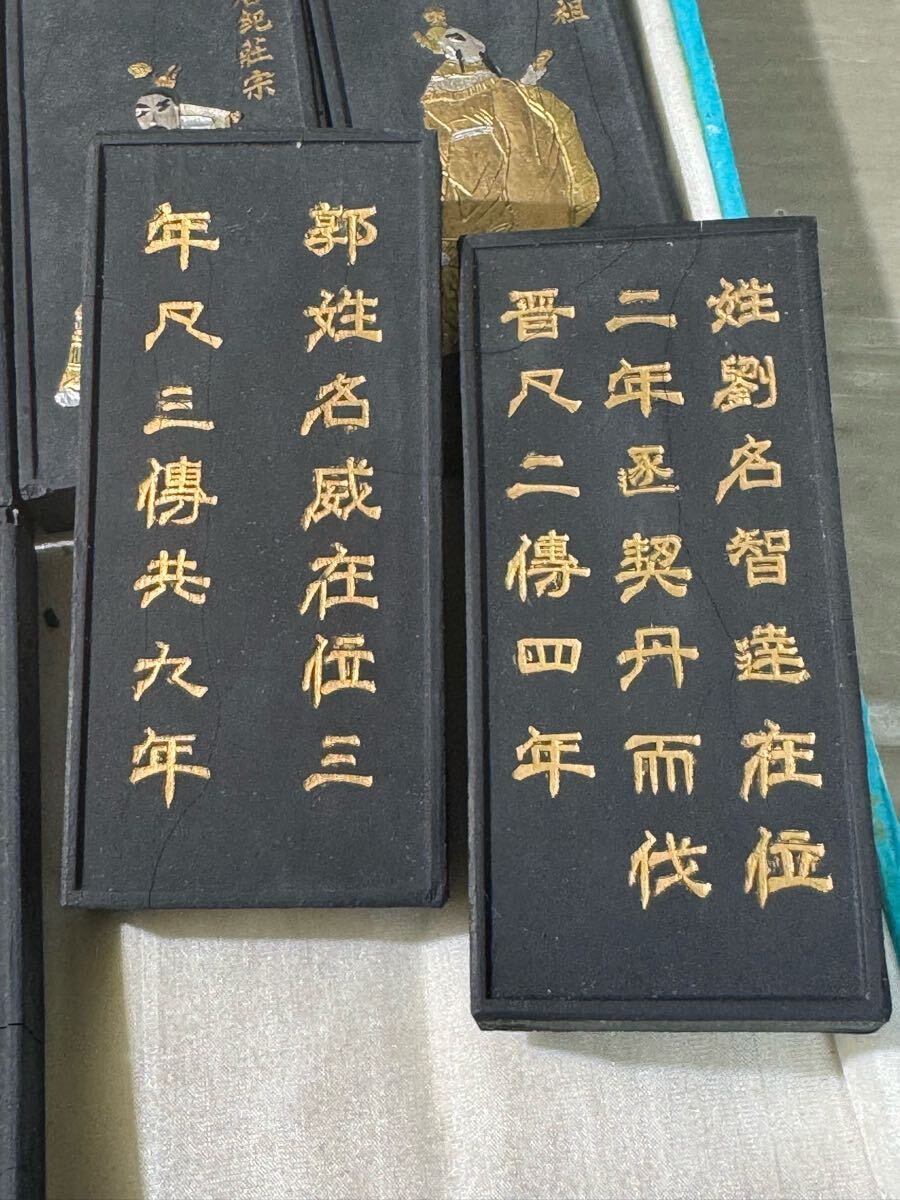 紀莊宗
祖
郭姓名威在位三
年凡三傳共九年
姓劉名智遠在位
二年逐契丹而伐
晋凡二傳四年